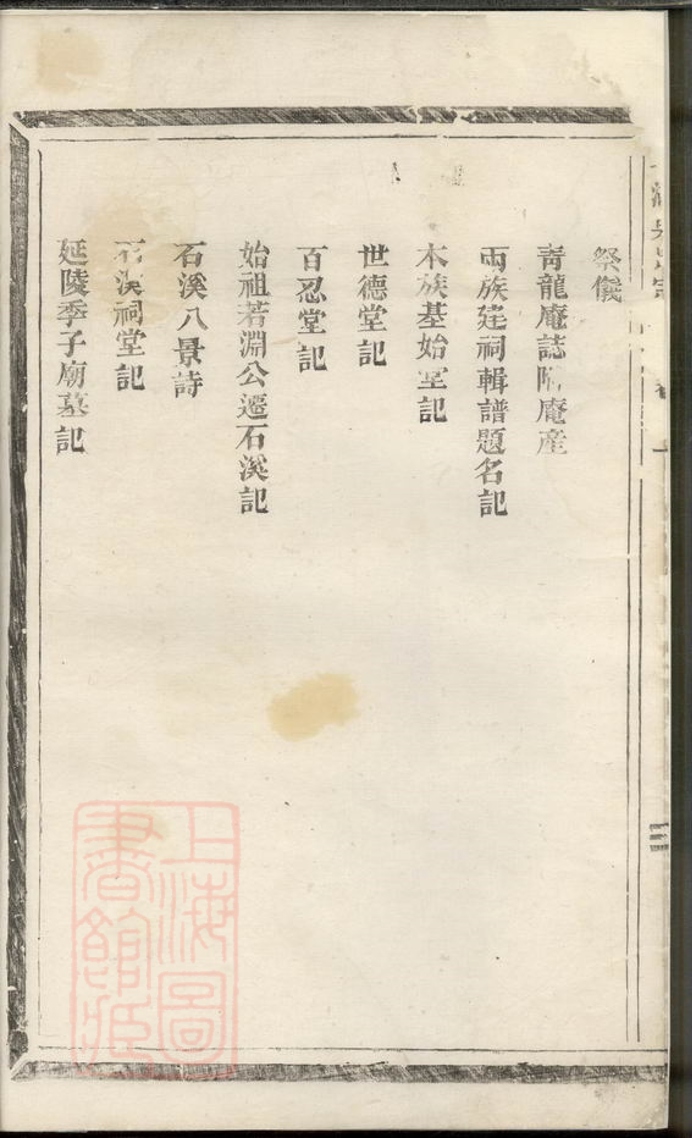 祭儀
青龍庵誌附庵產
兩族建祠輯譜題名記
本族基始堂記
世德堂記
百忍堂記
始祖若淵公遷石溪記
石溪八景詩
石溪祠堂記
延陵季子廟墓記
三
上海圖書館藏